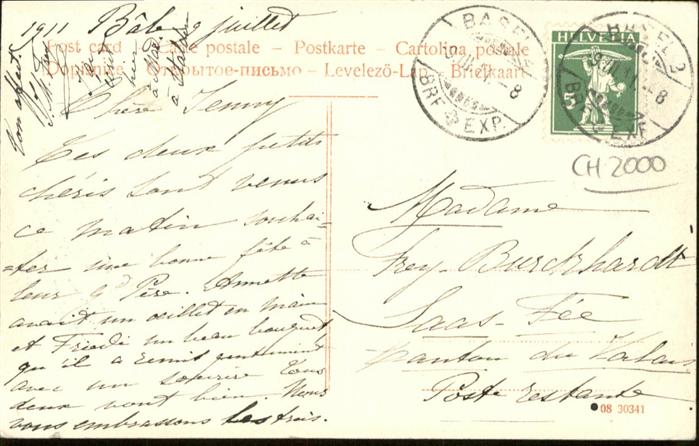 1911 Bâle 9 juillet
Post card | Carte postale - Postkarte - Cartolina postale
Dopisnice - Открытое-письмо - Levelező-Lap - Briefkaart
BASEL 2
BRF. EXP.
HELVETIA
5
BASEL 2
BRF. EXP.
CH 2000
Chère Jenny
Tes deux petits
chéris sont venus
ce matin souhai-
=ter une bonne fête à
leur gd Père. Annette
avait un oeillet en main
et Friedi un beau bouquet
qu'il a remis gentiment
avec un sourire Tous
deux vont bien. Nous
vous embrassons les trois.
Ton affect.
Madame
Frey-Burckhardt
Saas-Fée
canton du Valais
Poste restante
08 30341